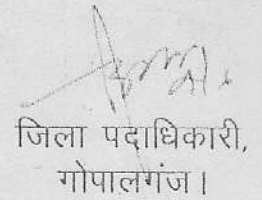 जिला पदाधिकारी,
गोपालगंज।